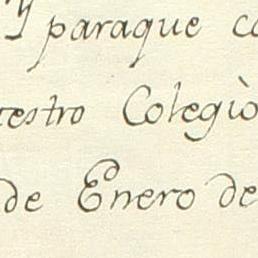 Y paraque co
estro Colegiò
de Enero de